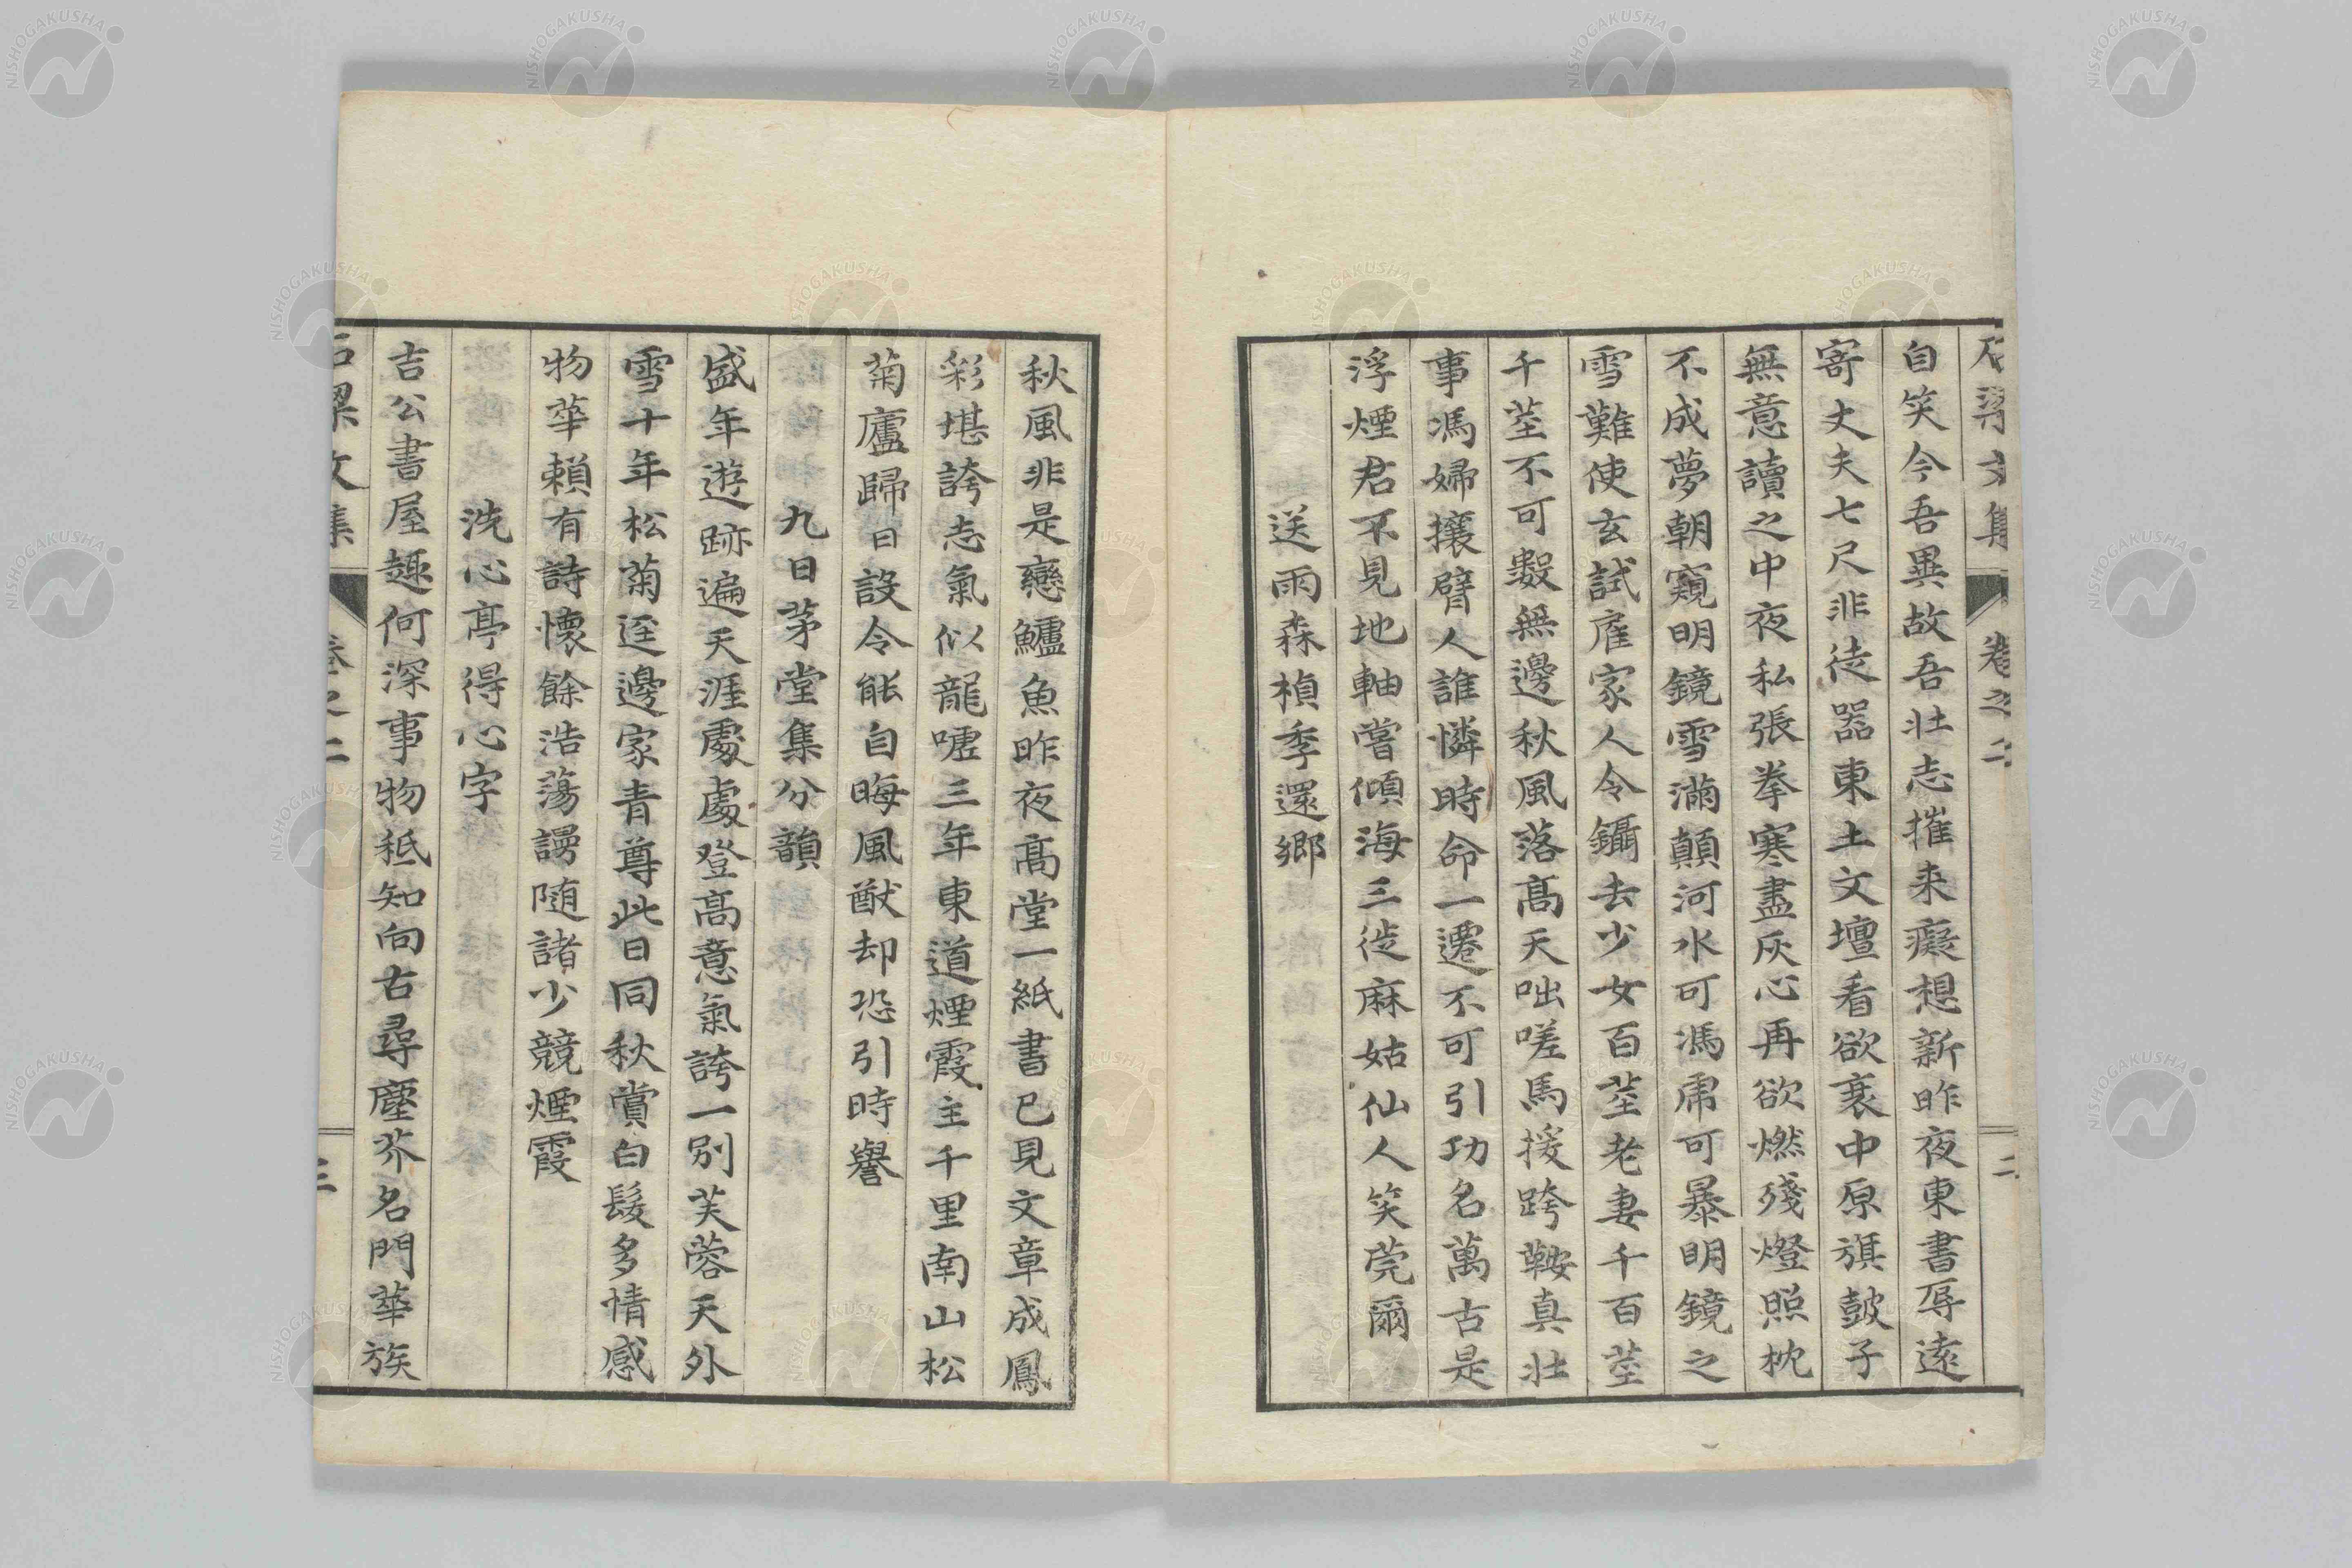 石梁文集 卷之二 二
自笑今吾異故吾壯志摧来癡想新昨夜東書辱遠
寄丈夫七尺非徒器東土文壇看欲衰中原旗鼓子
無意讀之中夜私張拳寒盡灰心再欲燃殘燈照枕
不成夢朝窺明鏡雪滿顛河水可馮虎可暴明鏡之
雪難使玄試雇家人令鑷去少女百莖老妻千百莖
千莖不可數無邊秋風落髙天咄嗟馬援跨鞍真壯
事馮婦攘臂人誰憐時命一遷不可引功名萬古是
浮煙君不見地軸嘗傾海三徙麻姑仙人笑莞爾
送雨森楨季還鄉
秋風非是戀鱸魚昨夜髙堂一紙書已見文章成鳳
彩堪誇志氣似龍噓三年東道煙霞主千里南山松
菊廬歸日設令能自晦風猷却恐引時譽
九日茅堂集分韻
盛年遊跡遍天涯處處登髙意氣誇一別芙蓉天外
雪十年松菊逕邊家青尊此日同秋賞白髮多情感
物華賴有詩懷餘浩蕩謾随諸少競煙霞
洗心亭得心字
吉公書屋趣何深事物秪知向古尋塵芥名門華族
石梁文集 卷之二 三
NISHOGAKUSHA